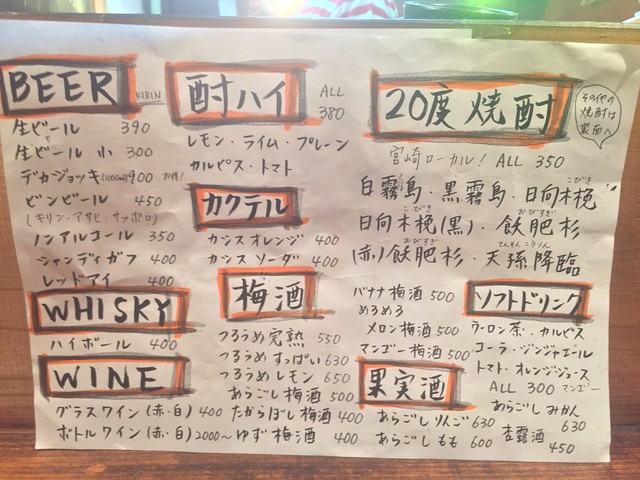 BEER KIRIN
生ビール 390
生ビール 小 300
デカジョッキ(1000ml)900 お得!
ビンビール 450
(キリン・アサヒ・サッポロ)
ノンアルコール 350
シャンディガフ 400
レッドアイ 400
WHISKY
ハイボール 400
WINE
グラスワイン(赤・白)400
ボトルワイン(赤・白)2000~
酎ハイ ALL 380
レモン・ライム・プレーン
カルピス・トマト
カクテル
カシスオレンジ 400
カシスソーダ 400
梅酒
つるうめ完熟 550
つるうめすっぱい 630
つるうめレモン 650
あらごし梅酒 500
たからぼし梅酒 400
ゆず梅酒 400
バナナ梅酒 500
めろめろ
メロン梅酒 500
マンゴー梅酒 500
20度焼酎
その他の
焼酎は
裏面へ
宮崎ローカル! ALL 350
白霧島・黒霧島・日向木挽
こびき
日向木挽(黒)・飫肥杉
こびき おびすぎ
(赤)飫肥杉・天孫降臨
おびすぎ てんそんこうりん
果実酒
あらごしりんご 630
あらごしもも 600
あらごしみかん
630
杏露酒
450
ソフトドリンク
ウーロン茶・カルピス
コーラ・ジンジャエール
トマト・オレンジジュース
ALL 300 マンゴー